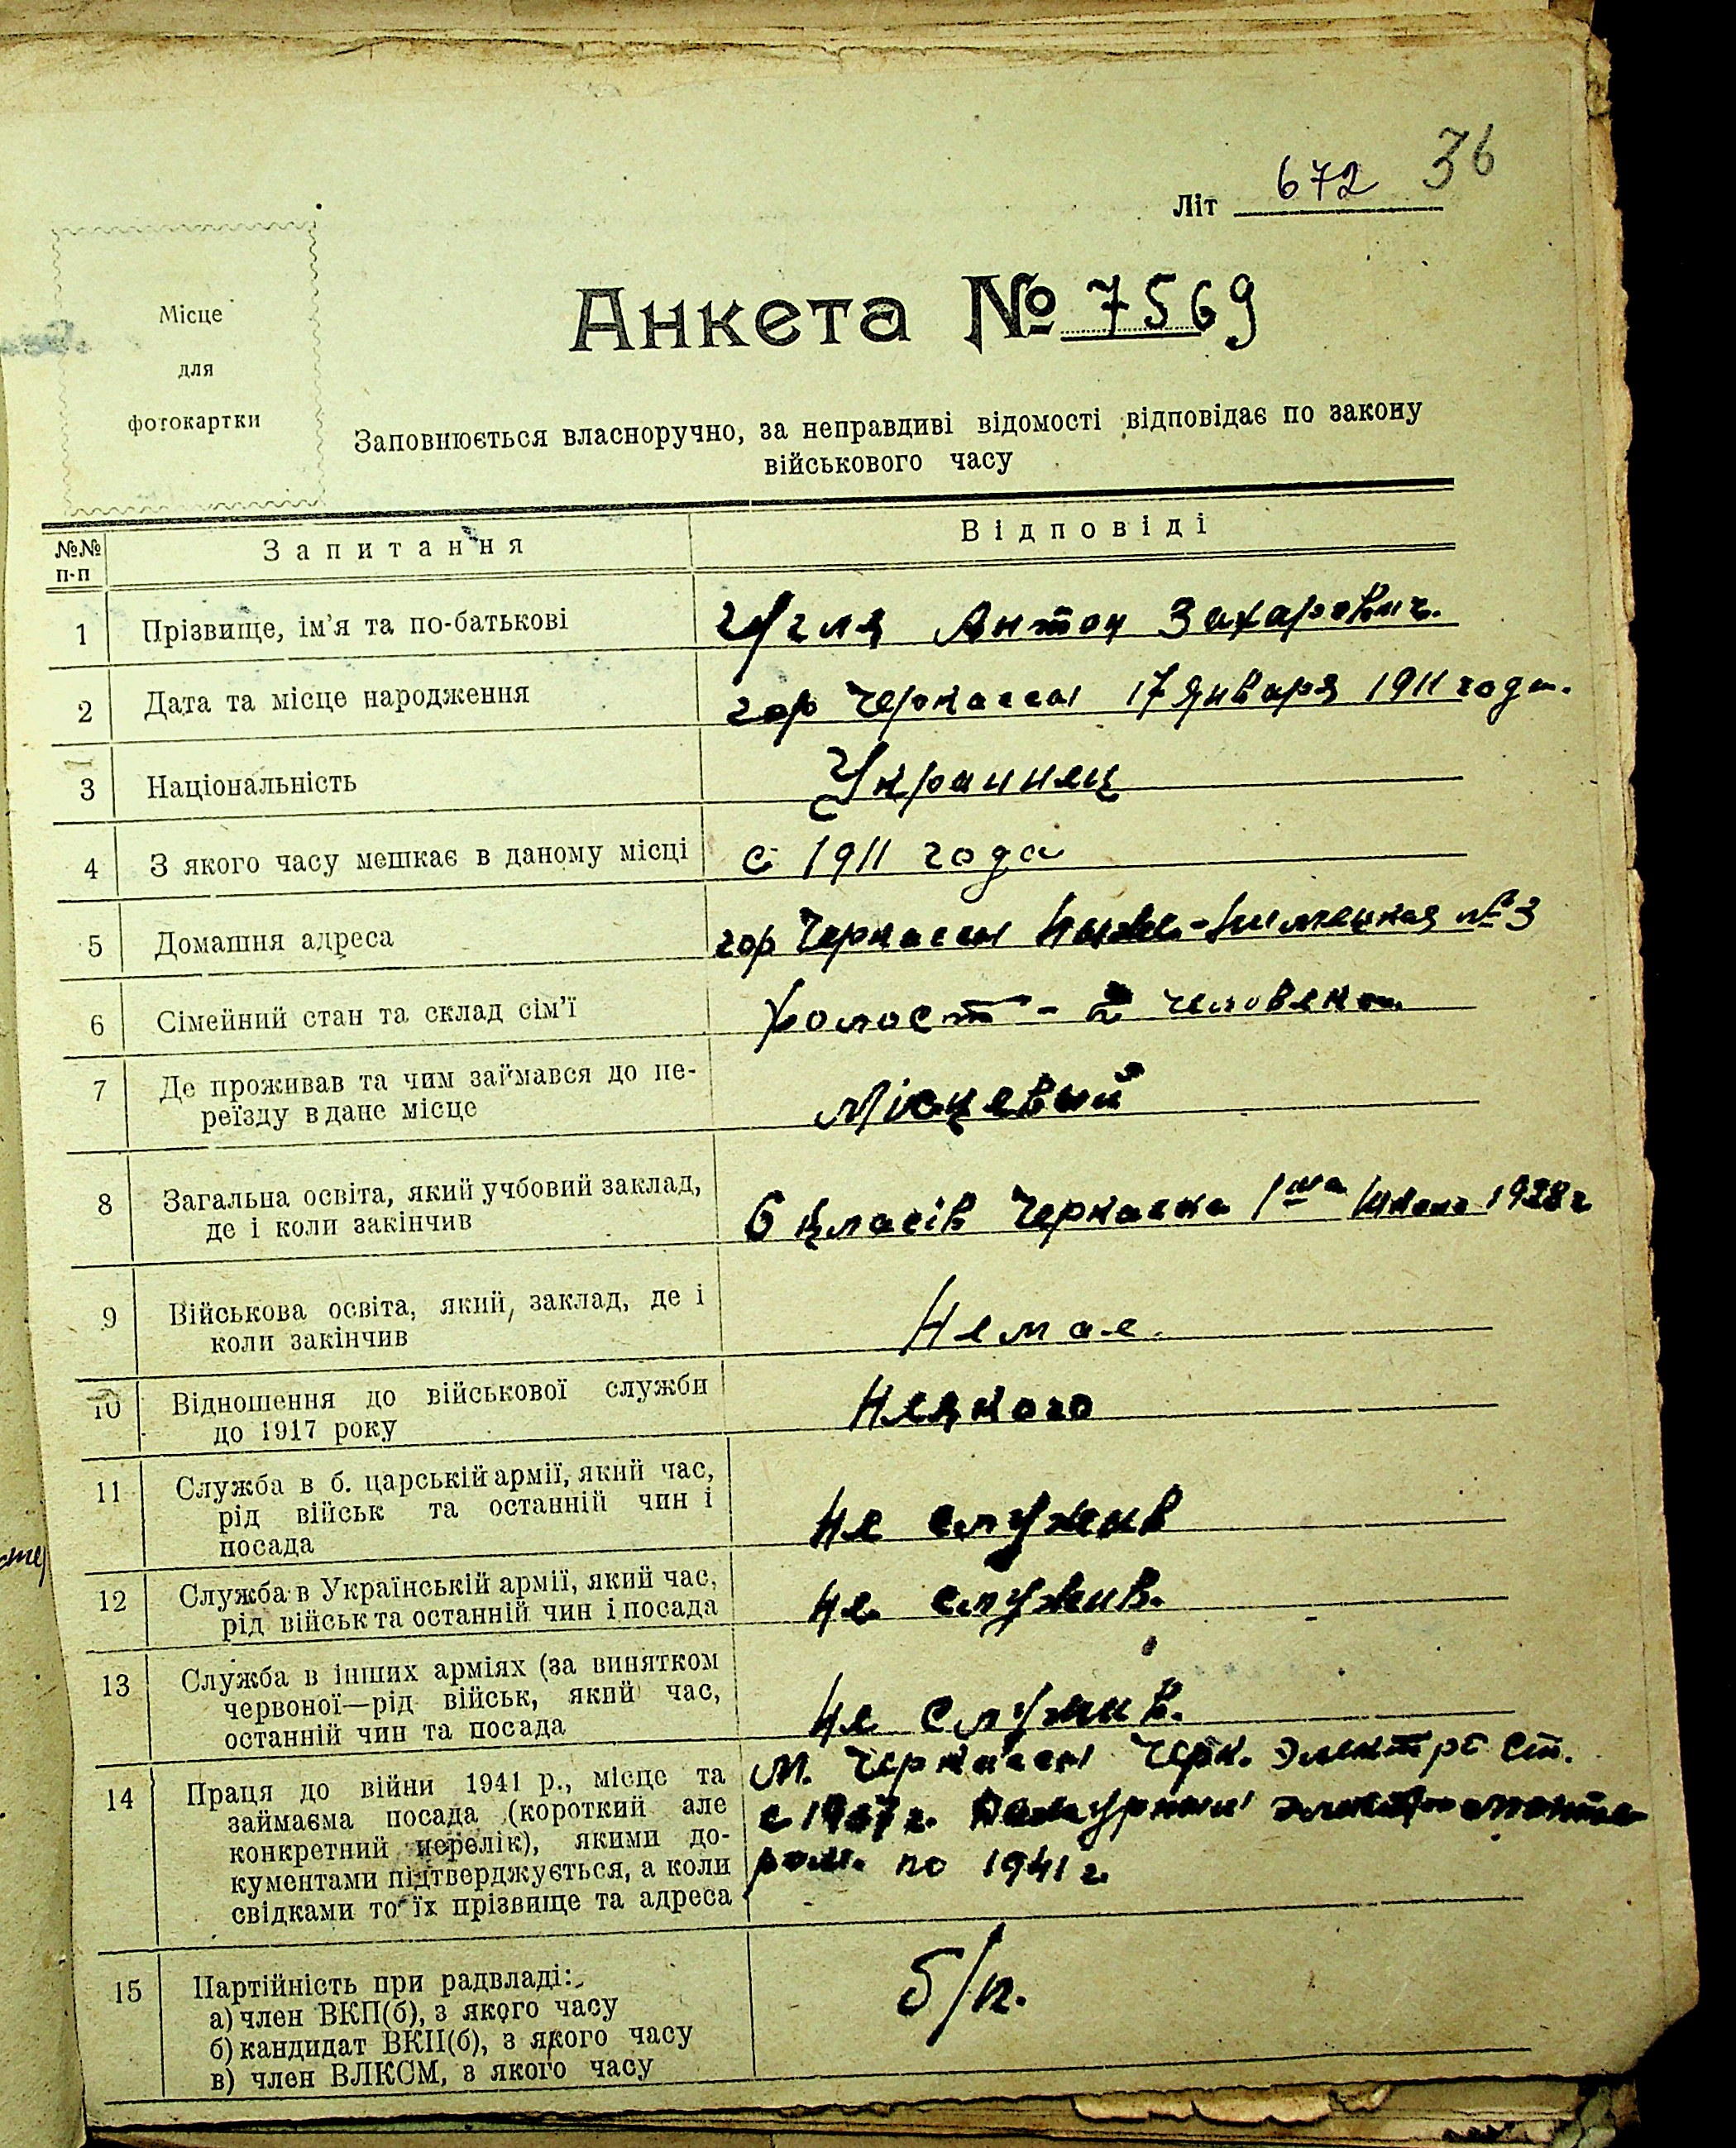 36
Літ 672
Місце
для
фотокартки
Анкета № 7569
Заповнюється власноручно, за неправдиві відомості відповідає по закону
військового часу
№№
п-п
Запитання
Відповіді
1
Прізвище, ім’я та по-батькові
Антон Захарович.
2
Дата та місце народження
гор Черкассы 17 января 1911 года.
3
Національність
Украинец
4
З якого часу мешкає в даному місці
с 1911 года
5
Домашня адреса
гор Черкассы №3
6
Сімейний стан та склад сім’ї
холост - 2 человека.
7
Де проживав та чим займався до пе-
реїзду в дане місце
Місцевый
8
Загальна освіта, який учбовий заклад,
де і коли закінчив
6 класів Черкаска 1ша 1928 г
9
Військова освіта, який, заклад, де і
коли закінчив
Немае.
10
Відношення до військової служби
до 1917 року
Неякого
11
Служба в б. царській армії, який час,
рід військ та останній чин і
посада
не служив
12
Служба в Українській армії, який час,
рід військ та останній чин і посада
не служив.
13
Служба в інших арміях (за винятком
червоної—рід військ, який час,
останній чин та посада
не служив.
14
Праця до війни 1941 р., місце та
займаєма посада (короткий але
конкретний перелік), якими до-
кументами підтверджується, а коли
свідками то їх прізвище та адреса
М. Черкассы Черк. Электро ст.
с Дежурный электромонте
ром. по 1941 г.
15
Партійність при радвладі:
а) член ВКП(б), з якого часу
б) кандидат ВКП(б), з якого часу
в) член ВЛКСМ, з якого часу
б/п.